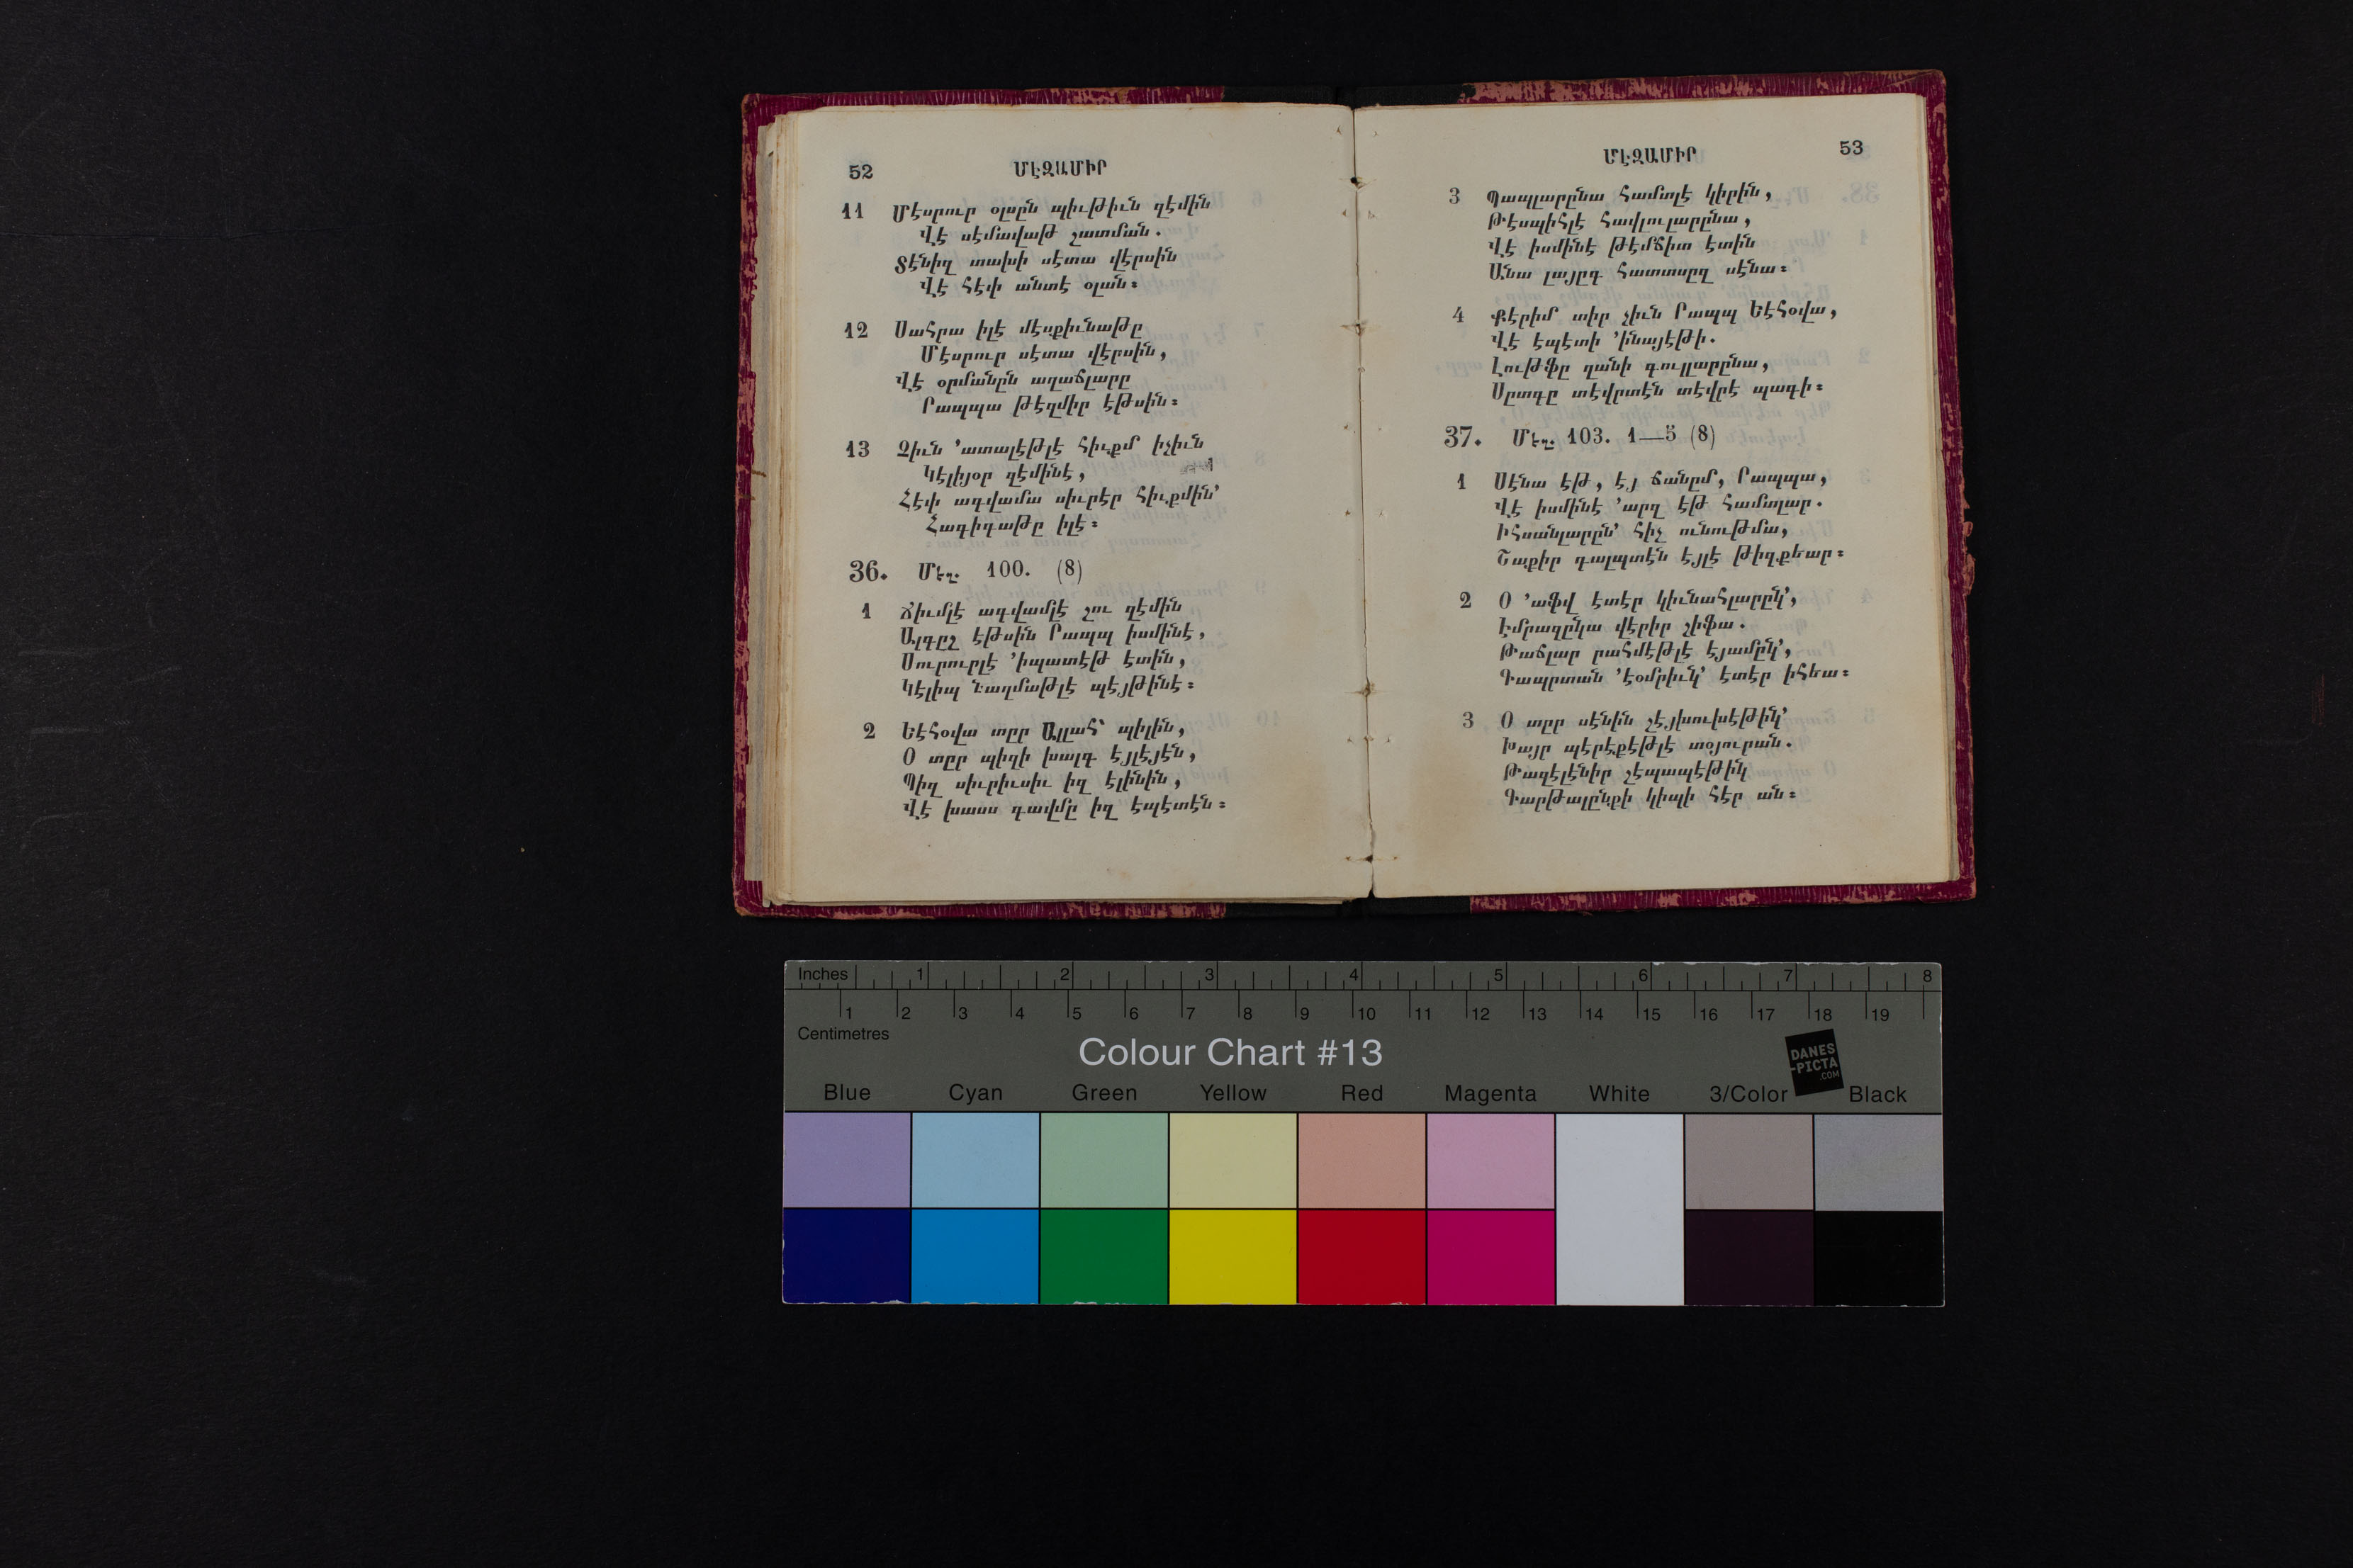 52 ՄԷԶԱՄԻՐ
11 Մէսրուր օլսըն պիւթիւն զէմին
Վէ սէմավաթ շատման.
Տէնիզ տախի սէտա վէրսին
Վէ հէփ անտէ օլան։
12 Սահրա իլէ մէսքիւնաթը
Մէսրուր սէտա վէրսին,
Վէ օրմանըն աղաճլարը
Րապպա թէզմիր էթսին։
13 Զիւն ՚ատալէթլէ հիւքմ իչիւն
Կէլիյօր զէմինէ,
Հէփ ագվամա սիւրէր հիւքմին՚
Հագիգաթը իլէ։
36. Մեզ. 100. (8)
1 Ճիւմլէ ագվամլէ շու զէմին
Ալգըշ էթսին Րապպ իսմինէ,
Սուրուրլէ ՚իպատէթ էտին,
Կէլիպ նաղմաթլէ պէյթինէ։
2 Եէհօվա տըր Ալլահ՝ պիլին,
Օ տըր պիզի խալգ էյլէյէն,
Պիզ սիւրիւսիւ իզ էլինին,
Վէ խասս գավմը իզ էպէտէն։
ՄԷԶԱՄԻՐ 53
3 Պապլարընա համտլէ կիրին,
Թէսպիհլէ հավլուլարընա,
Վէ իսմինէ թէմճիտ էտին
Անա լայըգ հատտսըզ սէնա։
4 Քէրիմ տիր չիւն Րապպ Եէհօվա,
Վէ էպէտի ՚ինայէթի.
Լութֆը ղանի գուլլարընա,
Սըտգը տէվրտէն տէվրէ պագի։
37. Մեզ. 103. 1—5 (8)
1 Սէնա էթ, էյ ճանըմ, Րապպա,
Վէ իսմինէ ՚արզ էթ համտլար.
Իհսանլարըն՚ հիչ ունութմա,
Շաքիր գալպտէն էյլէ թիզքեար։
2 Օ ՚աֆվ էտէր կիւնահլարըկ՚,
Էմրազըկա վէրիր շիֆա.
Թաճլար րահմէթլէ էյամըկ՚,
Գապրտան ՚էօմրիւկ՚ էտէր իհեա։
3 Օ տըր սէնին շէյխուխէթիկ՚
Խայր պէրէքէթլէ տօյուրան.
Թազէլէնիր շէպապէթիկ
Գարթալընքի կիպի հէր ան։
Inches 1 2 3 4 5 6 7 8
1 2 3 4 5 6 7 8 9 10 11 12 13 14 15 16 17 18 19
Centimetres
Colour Chart #13
DANES
-PICTA
.COM
Blue Cyan Green Yellow Red Magenta White 3/Color Black